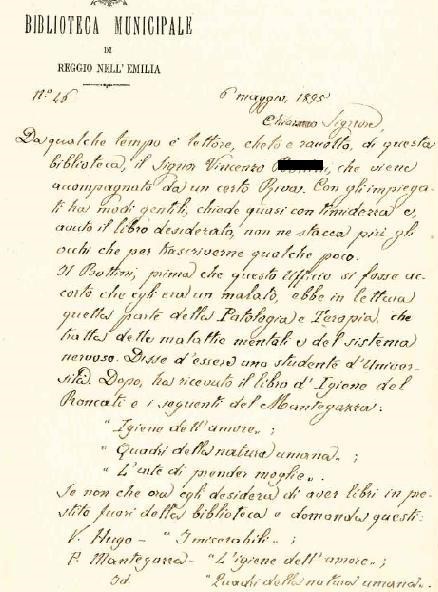 BIBLIOTECA MUNICIPALE
DI
REGGIO NELL'EMILIA
N.º 46
6 maggio, 1895
Chiarmo Signore,
Da qualche tempo è lettore, cheto e raccolto, di questa
biblioteca, il Signor Vincenzo , che viene
accompagnato da un certo Rivas. Con gli impiega-
ti ha modi gentili, chiede quasi con timidezza e,
avuto il libro desiderato, non ne stacca più gli
occhi che per trascriverne qualche poco.
Il Bottini, prima che questo Ufficio si fosse ac-
corto che egli era un malato, ebbe in lettura
quella parte della Patologia e Terapia che
tratta delle malattie mentali e del sistema
nervoso. Disse d'essere uno studente d'Univer-
sità. Dopo, ha ricevuto il libro d'Igiene del
Roncati e i seguenti del Mantegazza:
"Igiene dell'amore„ ;
"Quadri della natura umana„ ;
"L'arte di prender moglie„.
Se non che ora egli desidera di aver libri in pre-
stito fuori della biblioteca e domanda questi:
V. Hugo - "I miserabili„ ;
P. Mantegazza - "L'igiene dell'amore„ ;
Id "Quadri della natura umana„.